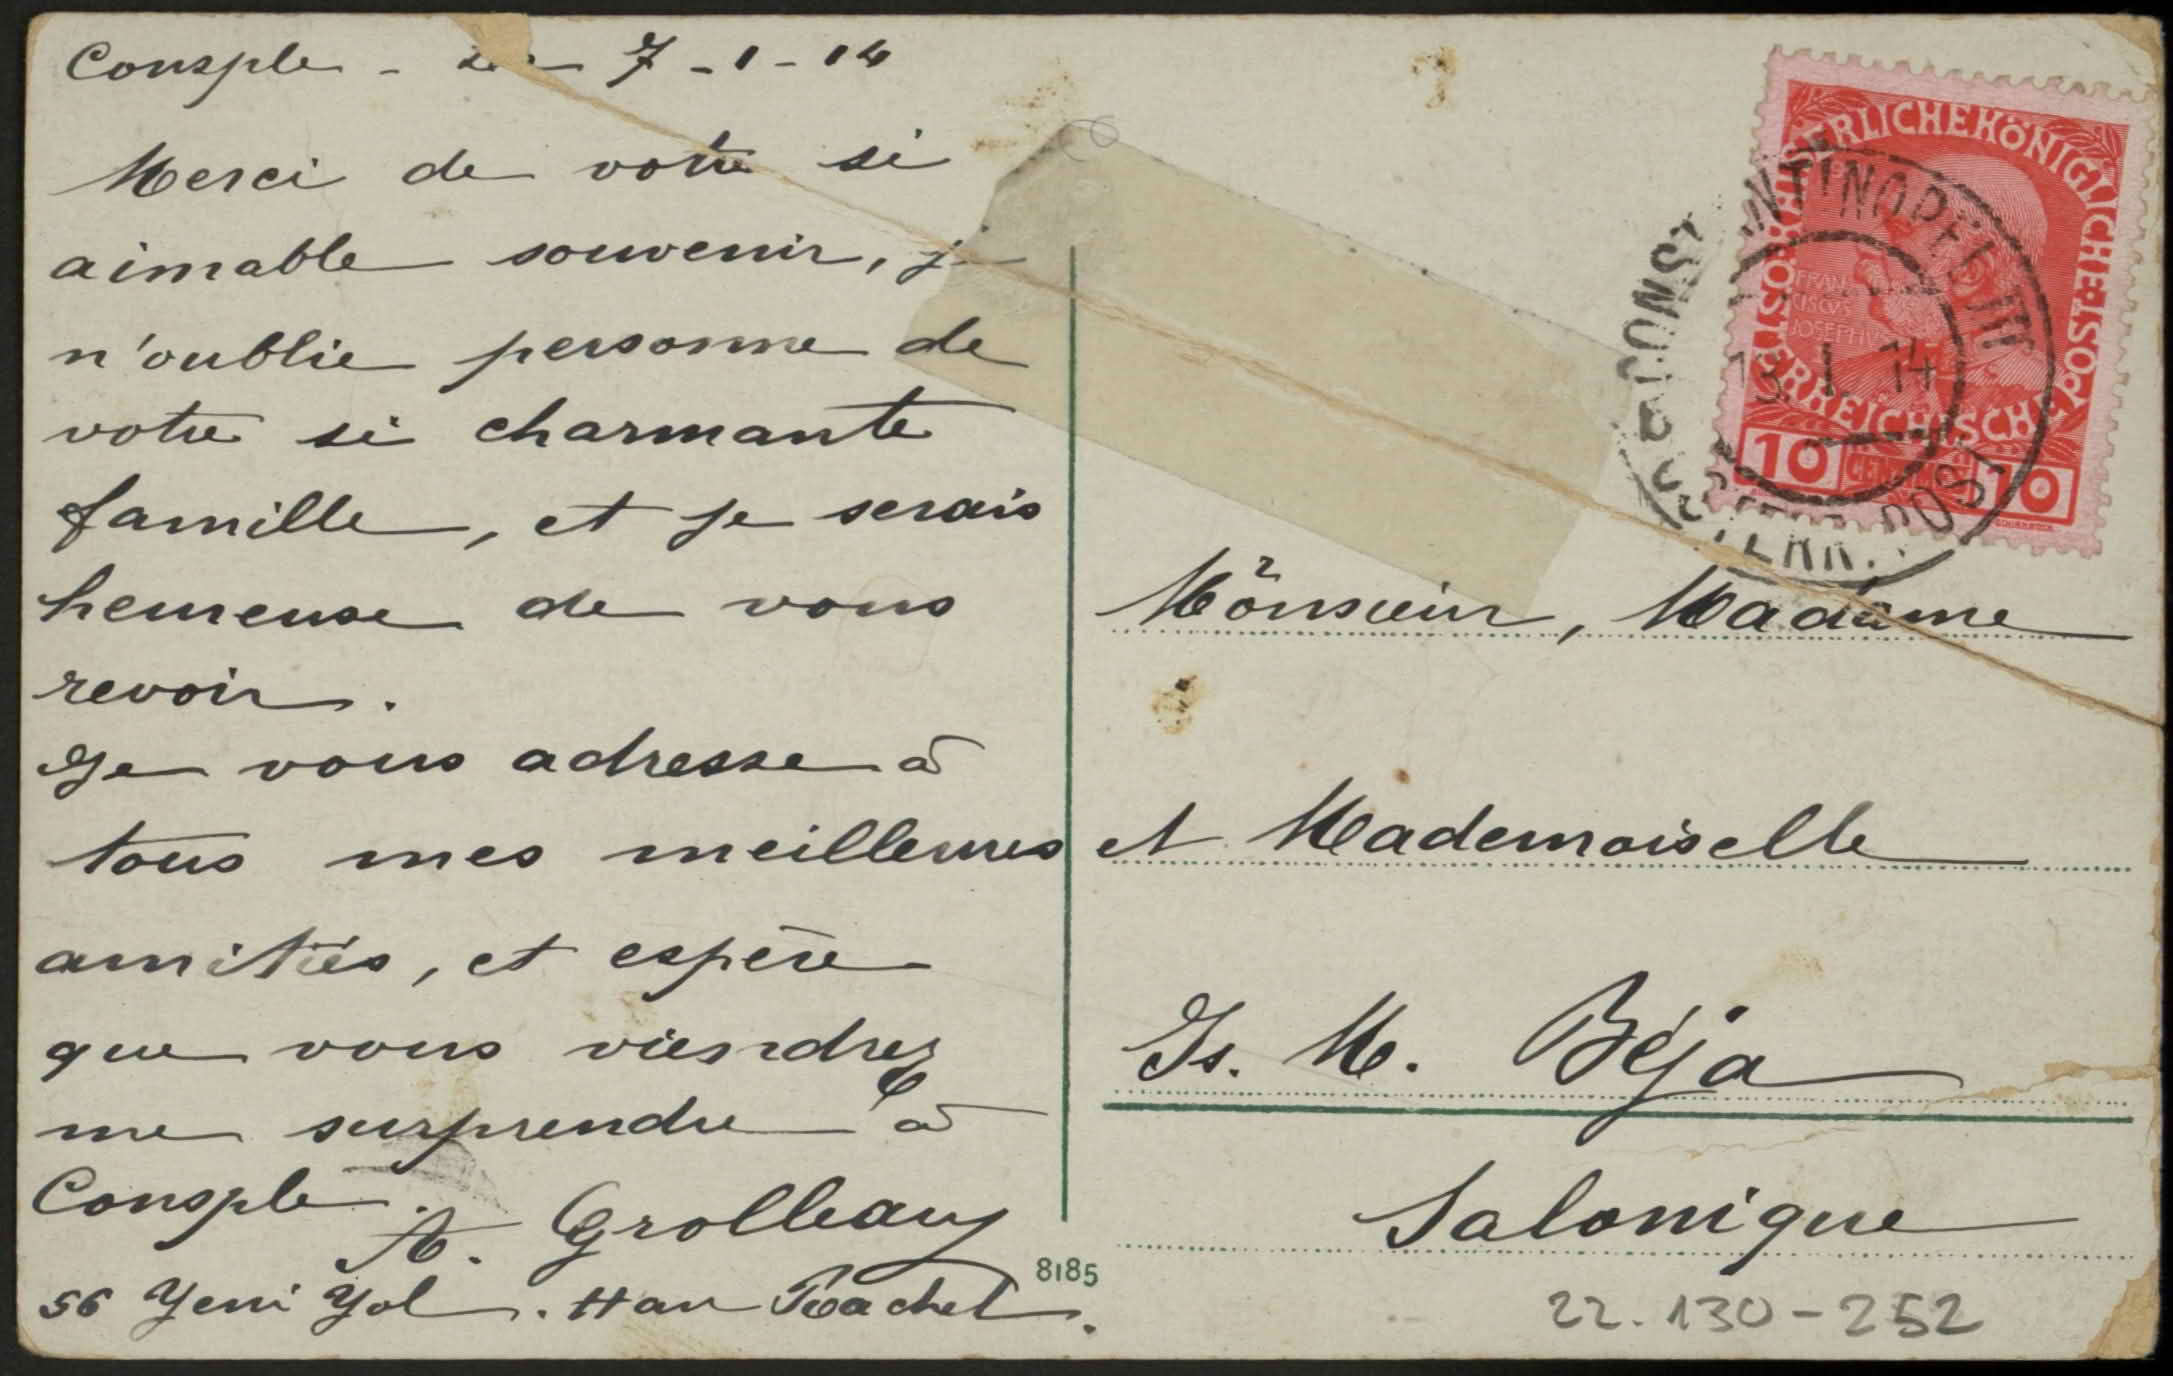 Consple - le 7-1-14
Merci de votre si
aimable souvenir, je
n'oublie personne de
votre si charmante
famille, et je serais
heureuse de vous
revoir.
Je vous adresse à
tous mes meilleures
amitiés, et espère
que vous viendrez
me surprendre à
Consple.
A. Grolleau
56 Yeni Yol. Han Rachel.
8185
KAISERLICHE KÖNIGLICHE ÖSTERREICHISCHE POST
FRANCISCUS JOSEPHVS
10 10
CONSTANTINOPEL III
13 I 14
ÖSTERR. POST
Monsieur, Madame
et Mademoiselle
Is. M. Béja
Salonique
22.130-252